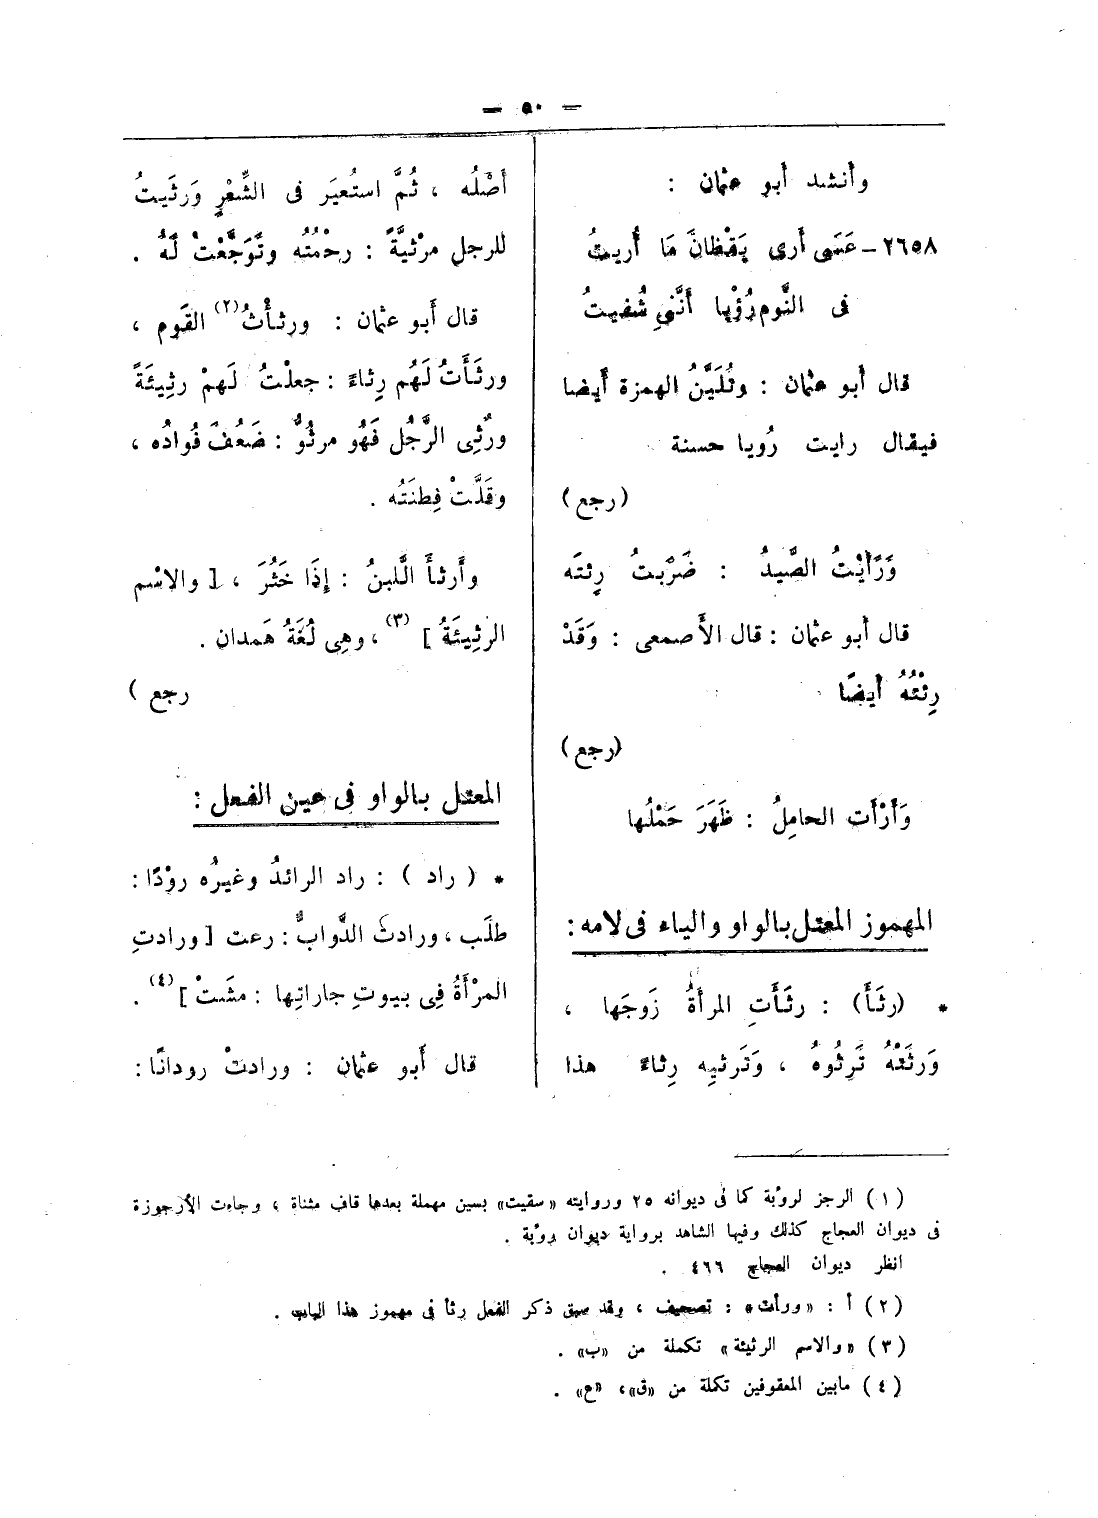 — ٥٠ —
وأنشد أبو عثمان :
٢٦٥٨ – عَسَى أرى يَقْظانَ مَا أُريتُ
فى النَّوم رُؤْيا أنَّنِى شُفيتُ
قال أبو عثمان : وتُلَيَّنُ الهمزة أيضا
فيقال رايت رُويا حسنة
(رجع)
وَرَأَيْتُ الصَّيدُ : ضَرَبتُ رِئتَه
قال أبو عثمان : قال الأَصمعى : وَقَدْ
رِئْتُهُ أيضًا
(رجع)
وَأَرْأَت الحامِلُ : ظَهَرَ حَمْلُها
المهموز المعتل بالواو والياء فى لامه :
* (رثَأَ) : رثَأَتِ المرأةُ زَوجَها ،
وَرثَتْهُ تَرثُوهُ ، وَتَرثيِه رِثاءً هذا
أَصْلُه ، ثُمَّ استُعيَر فى الشِّعْرِ وَرثَيتُ
للرجل مرْثيَّةً : رحْمتُه وتَوَجَّعْتُ لَهُ .
قال أبو عثمان : ورثأْتُ(٢) القَوم ،
ورثَأَتُ لَهُم رِثاءً : جعلْتُ لَهمْ رثِيئَةً
ورُثِى الرَّجُل فَهُو مرثُوٌّ : ضَعُفَ فُوادُه ،
وقَلَّتْ فِطنَتُه .
وأَرثأَ اللَّبنُ : إِذَا خَثُرَ ، [ والاسْم
الرثِيئَةُ ] (٣) ، وهِى لُغَةُ هَمدان .
رجع )
المعتل بالواو فى عين الفعل :
* ( راد ) : راد الرائدُ وغيرُه روْدًا :
طلَب ، ورادتْ الدَّوابُّ : رعت [ ورادتِ
المرْأَةُ فِى بيوتِ جاراتِها : مشَتْ ] (٤) .
قال أَبو عثمان : ورادتْ رودانًا :
(١) الرجز لرؤبة كما فى ديوانه ٢٥ وروايته «سقيت» بسين مهملة بعدها قاف مثناة ، وجاءت الأرجوزة
فى ديوان العجاج كذلك وفيها الشاهد برواية ديوان رؤبة .
انظر ديوان العجاج ٤٦٦ .
(٢) أ : «ورأت» : تصحيف ، وقد سبق ذكر الفعل رثأ فى مهموز هذا الباب .
(٣) «والاسم الرثيئة» تكملة من «ب» .
(٤) مابين المعقوفين تكملة من «ق» ، «ع» .